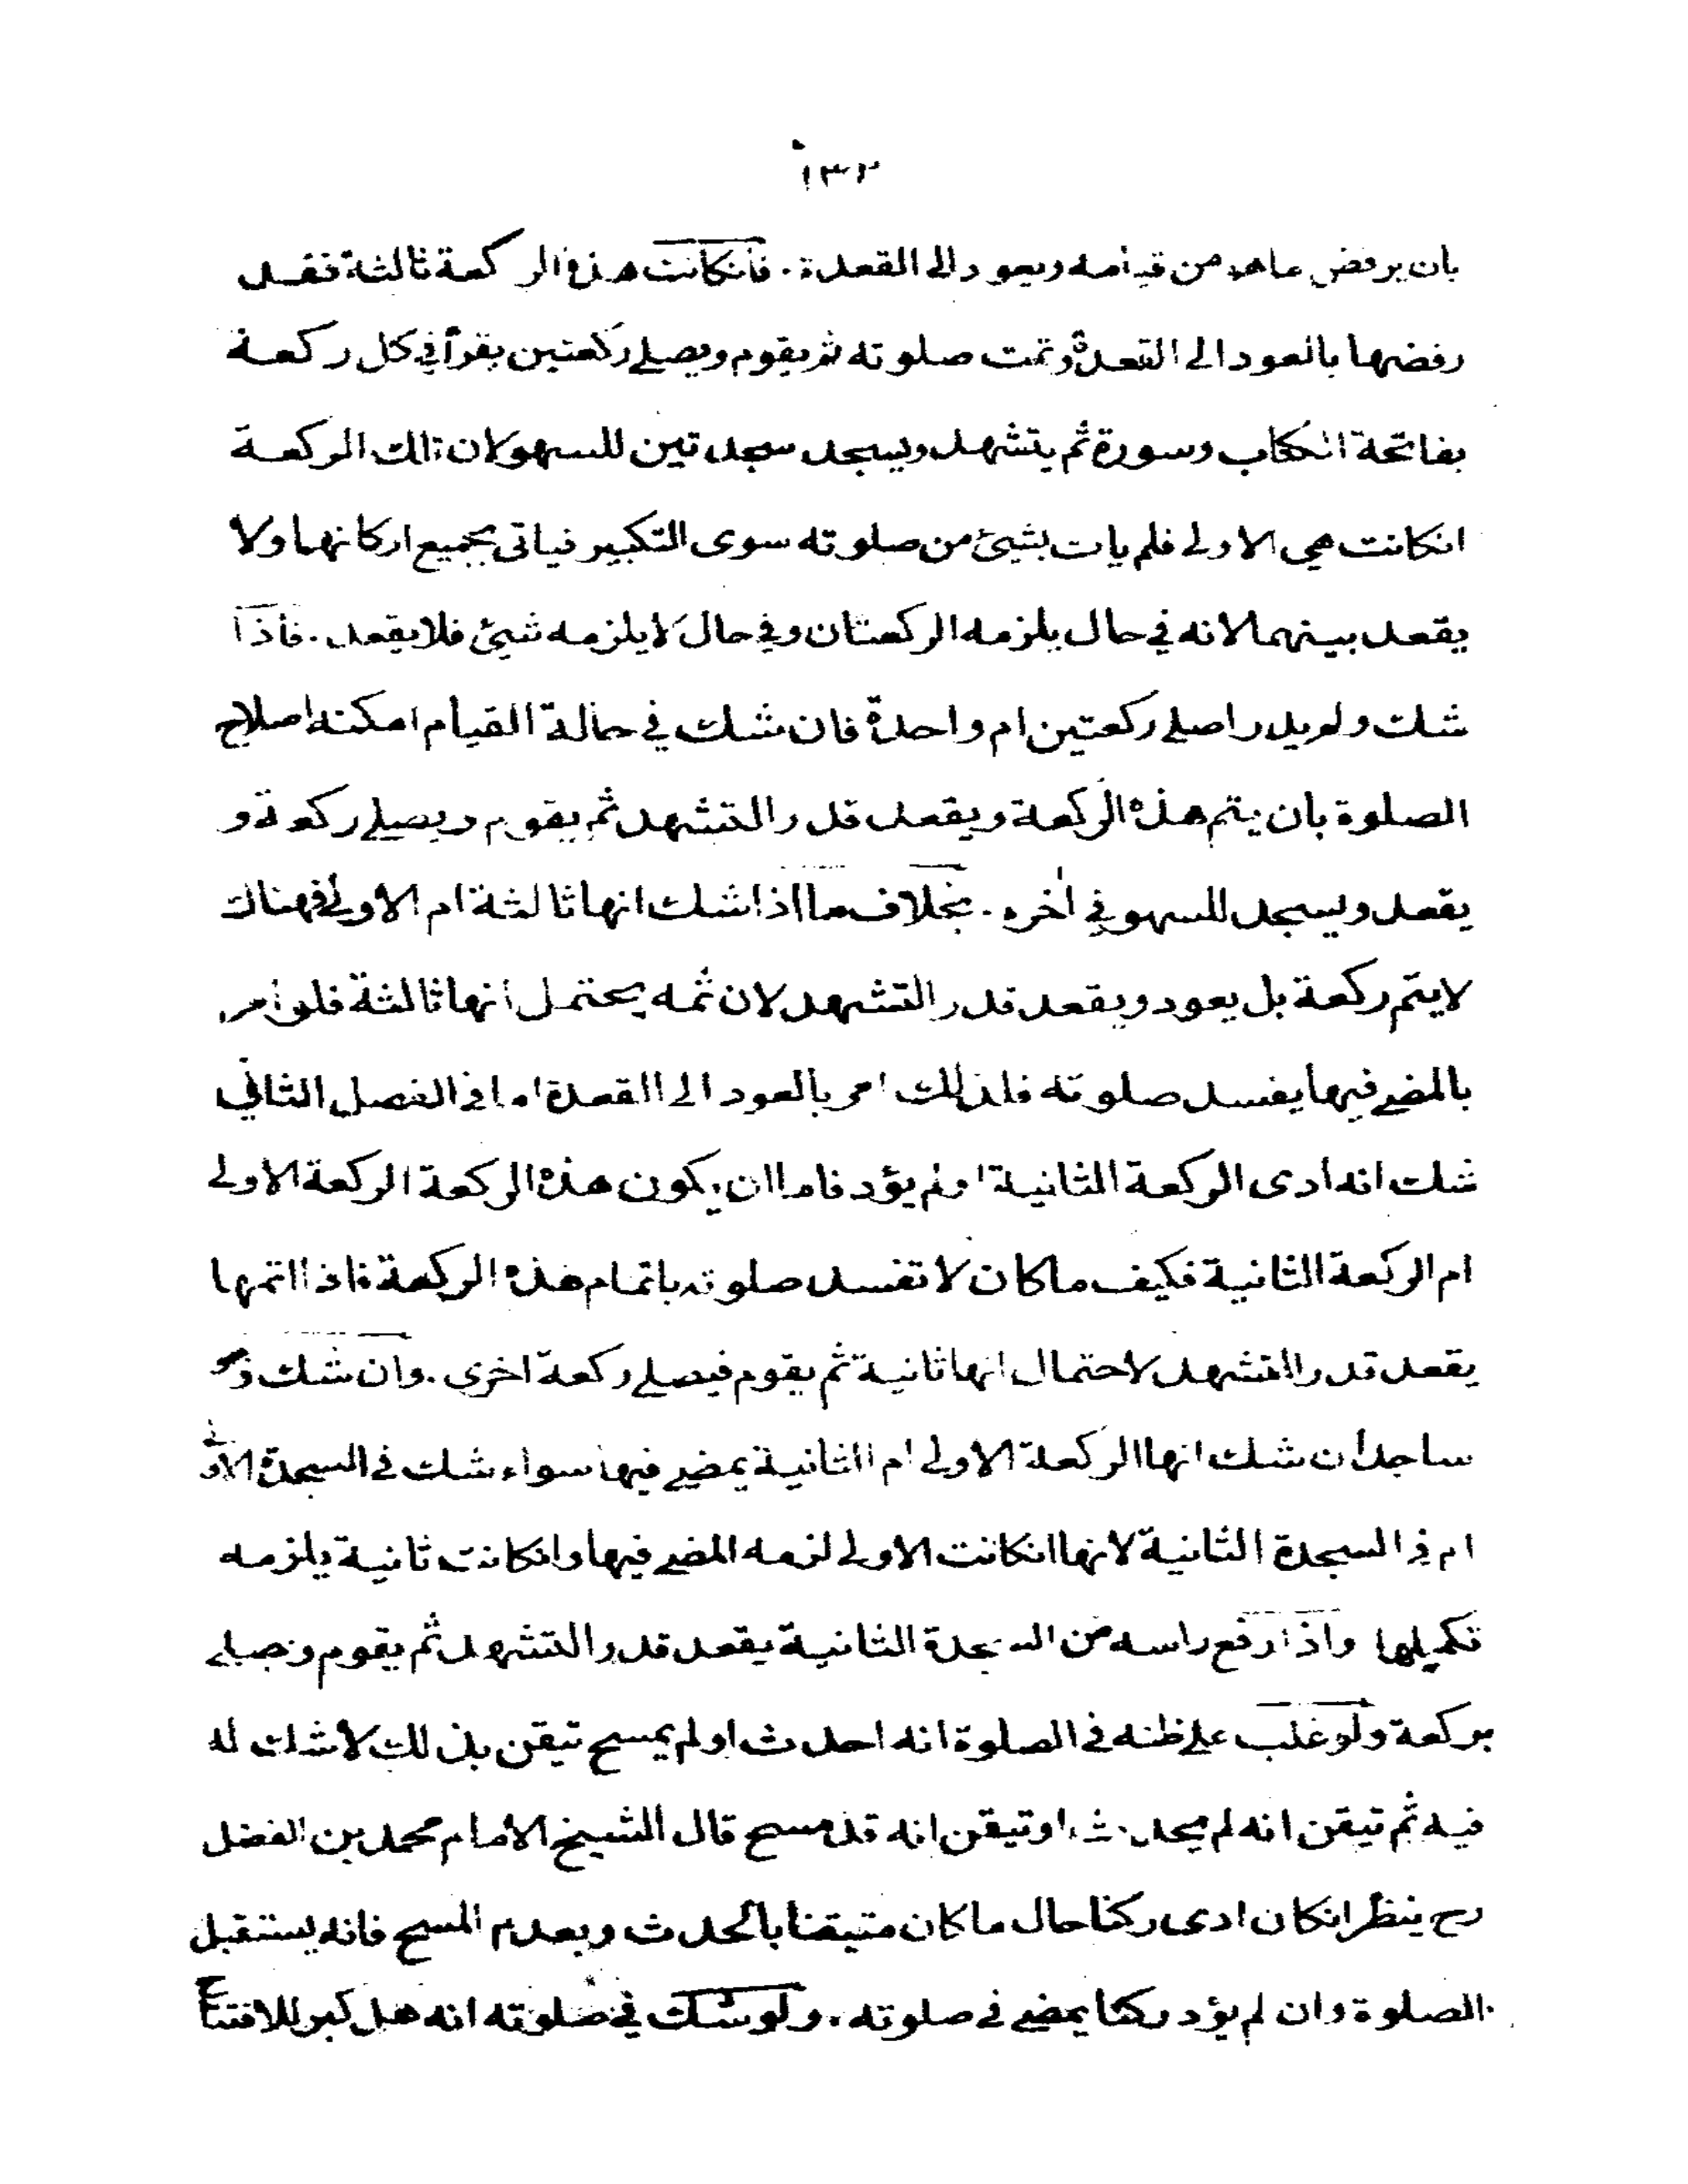 ١٣٢
بان يرفض ما هو من قيامه ويعود الى القعدة . فانكانت هذه الركعة ثالثة فقد
رفضها بالعود الى القعدة وتمت صلوته ثم يقوم ويصلے ركعتين يقرأ في كل ركعة
بفاتحة الكتاب وسورة ثم يتشهد ويسجد سجدتين للسهو لان تلك الركعة
انكانت هي الاولى فلم يات بشيئ من صلوته سوى التكبير فياتى بجميع اركانهما ولا
يقعد بينهما لانه في حال يلزمه الركعتان وفي حال لا يلزمه شيئ فلا يقعد . فاذا
شك ولم يدر اصلے ركعتين ام واحدة فان شك في حالة القيام امكنه اصلاح
الصلوة بان يتم هذه الركعة ويقعد قدر التشهد ثم يقوم ويصلے ركعة و
يقعد ويسجد للسهو في اٰخره . بخلاف ما اذا شك انها ثالثة ام الاولى فهناك
لا يتم ركعة بل يعود ويقعد قدر التشهد لان ثمه يحتمل انها ثالثة فلو امر
بالمضے فيها يفسد صلوته فلذلك امر بالعود الى القعدة اما في الفصل الثاني
شك انه ادى الركعة الثانية او لم يؤد فاما ان يكون هذه الركعة الركعة الاولى
ام الركعة الثانية فكيف ما كان لا تفسد صلوته باتمام هذه الركعة فاذا اتمها
يقعد قدر التشهد لاحتمال انها ثانية ثم يقوم فيصلے ركعة اخرى . وان شك وهو
ساجد ان شك انها الركعة الاولى ام الثانية يمضے فيها سواء شك في السجدة الاولى
ام في السجدة الثانية لانها انكانت الاولى لزمه المضے فيها وانكانت ثانية يلزمه
تكميلها واذا رفع راسه من السجدة الثانية يقعد قدر التشهد ثم يقوم ويصلے
بركعة ولو غلب علے ظنه في الصلوة انه احدث او لم يمسح تيقن بذلك لا شك له
فيه ثم تيقن انه لم يحدث او تيقن انه قد مسح قال الشيخ الامام محمد بن الفضل
رح ينظر انكان ادى ركنا حال ما كان متيقنا بالحدث وبعدم المسح فانه يستقبل
الصلوة وان لم يؤد ركنا يمضے في صلوته . ولو شك في صلوته انه هل كبر للافتتاح